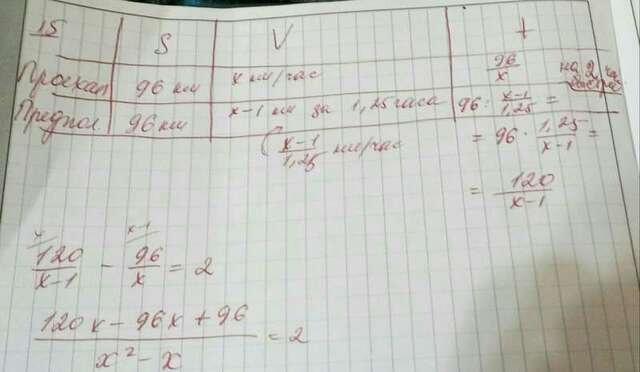 15 S V t
Проехал 96 км x км/час 96/x на 2 час быстрее
Предпол. 96 км x-1 км за 1,25 часа 96 : (x-1)/1,25 =
(x-1)/1,25 км/час = 96 · 1,25/(x-1) =
= 120/(x-1)
x x-1
120/(x-1) - 96/x = 2
(120x - 96x + 96)/(x² - x) = 2